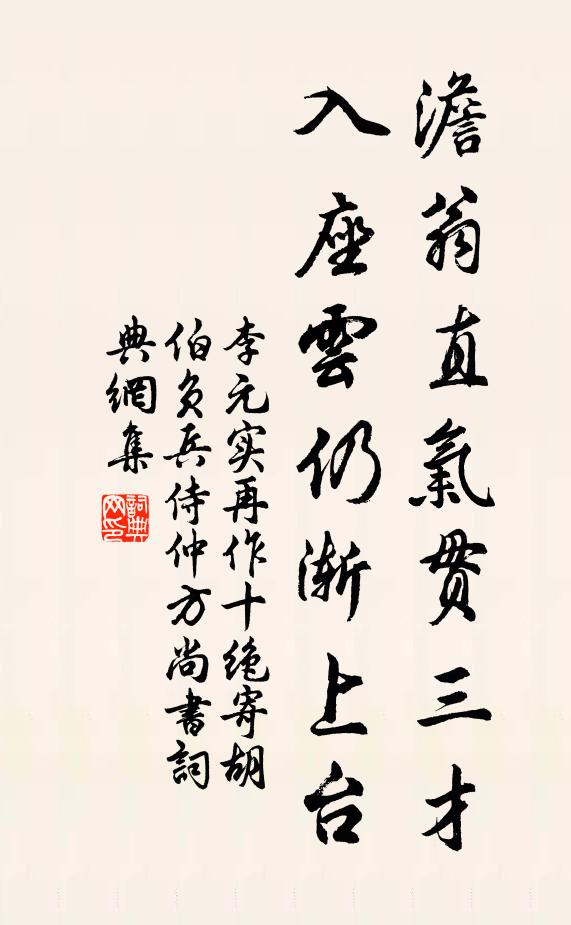 澹翁直氣貫三才
入座雲仍漸上台
李元实再作十绝寄胡
伯负兵侍仲方尚書詞
典網集
詞典網印